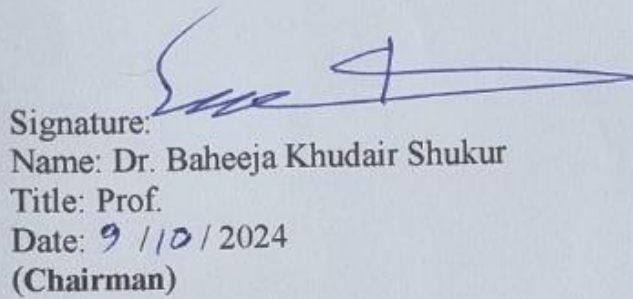 Signature:
Name: Dr. Baheeja Khudair Shukur
Title: Prof.
Date: 9 /10 / 2024
(Chairman)